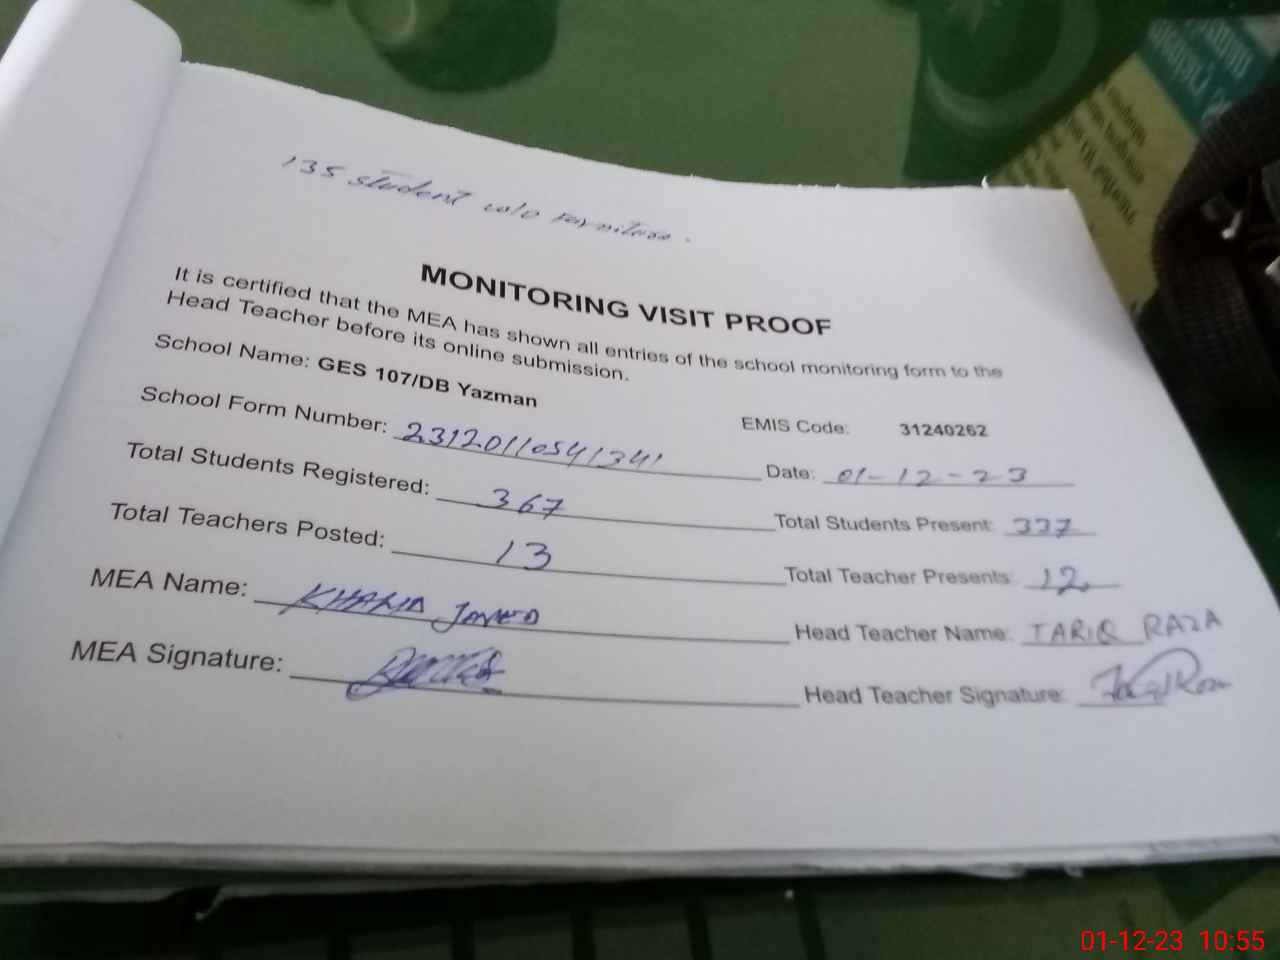 135 student w/o furniture.
MONITORING VISIT PROOF
It is certified that the MEA has shown all entries of the school monitoring form to the
Head Teacher before its online submission.
School Name: GES 107/DB Yazman
EMIS Code: 31240262
School Form Number: 23120110541341
Date: 01-12-23
Total Students Registered: 367
Total Students Present: 337
Total Teachers Posted: 13
Total Teacher Presents: 12
MEA Name: Javed
Head Teacher Name: TARIQ RAZA
MEA Signature:
Head Teacher Signature:
01-12-23 10:55